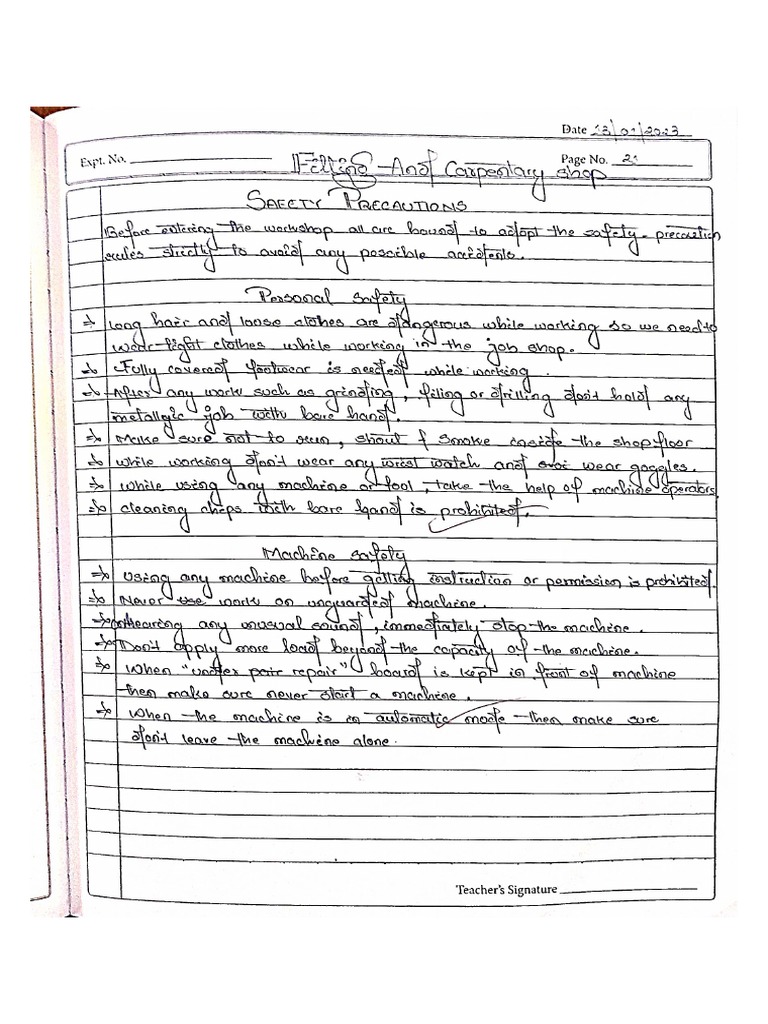 Date 13/01/2023
Expt. No.
Page No. 2
Fitting And Carpentary shop
SAFETY PRECAUTIONS
Before entering the workshop all are bound to adopt the safety precaution
rules strictly to avoid any possible accidents.
Personal safety
⇒ Long hair and loose clothes are dangerous while working so we need to
wear tight clothes while working in the job shop.
⇒ Fully covered footwear is needed while working.
⇒ After any work such as grinding, filing or drilling don't hold any
metallic job with bare hand.
⇒ Make sure not to run, shout & smoke inside the shop floor
⇒ while working don't wear any wrist watch and wear goggles.
⇒ while using any machine or tool, take the help of machine operators.
⇒ cleaning chips with bare hand is prohibited.
Machine safety
⇒ Using any machine before getting instruction or permission is prohibited.
⇒ Never use work on unguarded machine.
⇒ on hearing any unusual sound, immediately stop the machine.
⇒ Don't apply more load beyond the capacity of the machine.
⇒ When "under pair repair" board is kept in front of machine
then make sure never start a machine.
⇒ When the machine is in automatic mode then make sure
don't leave the machine alone.
Teacher's Signature